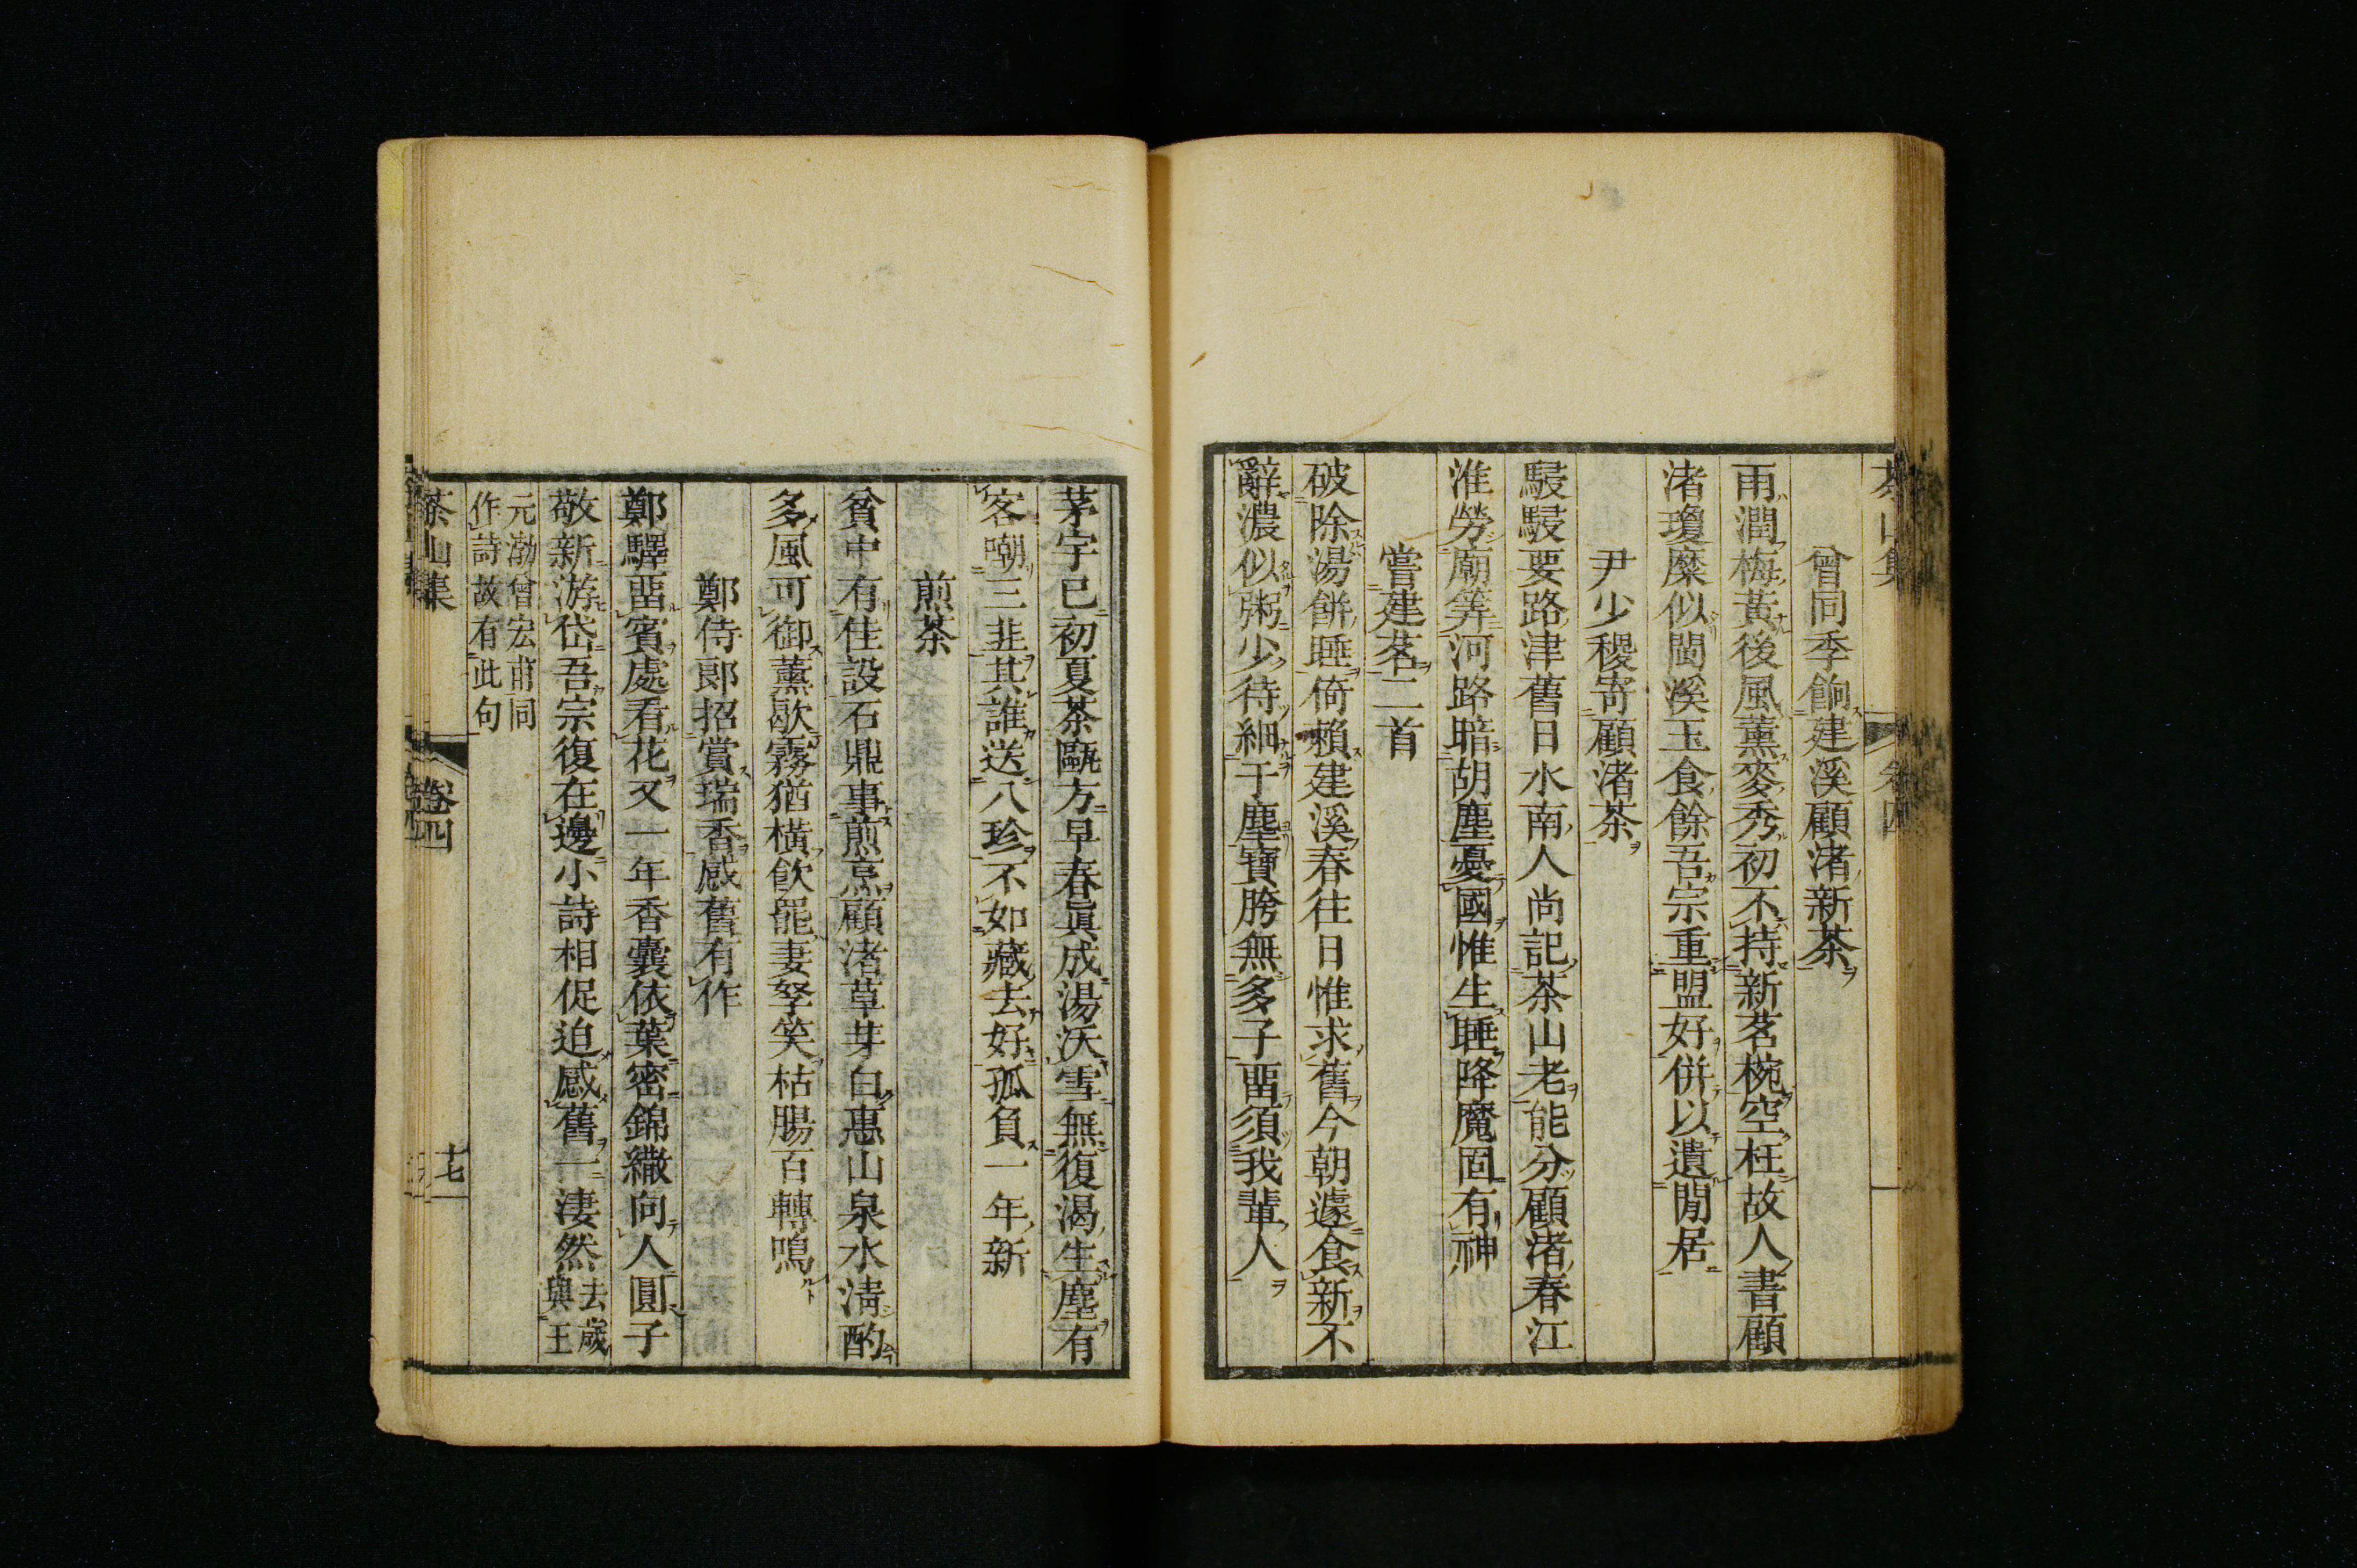 茶山集 卷四
曾同季餉建溪顧渚新茶
雨潤梅黃後風薰麥秀初不持新茗椀空枉故人書顧
渚瓊糜似閩溪玉食餘吾宗重盟好併以遺閒居
尹少稷寄顧渚茶
駸駸要路津舊日水南人尚記茶山老能分顧渚春江
淮勞廟筭河路暗胡塵憂國惟生睡降魔固有神
嘗建茗二首
破除湯餅睡倚賴建溪春往日惟求舊今朝遽食新不
辭濃似粥少待細于塵寶胯無多子畱須我輩人
茅宇已初夏茶甌方早春眞成湯沃雪無復渴生塵有
客嘲三韭其誰送八珍不如藏去好孤負一年新
煎茶
貧中有佳設石鼎事煎烹顧渚草芽白惠山泉水淸酌
多風可御薰歇霧猶橫飲罷妻孥笑枯腸百轉鳴
鄭侍郎招賞瑞香感舊有作
鄭驛畱賓處看花又一年香囊依葉密錦繖向人圓子
敬新游岱吾宗復在邊小詩相促迫感舊一淒然去歲與王
元渤曾宏甫同
作詩故有此句
茶山集 卷四 十七